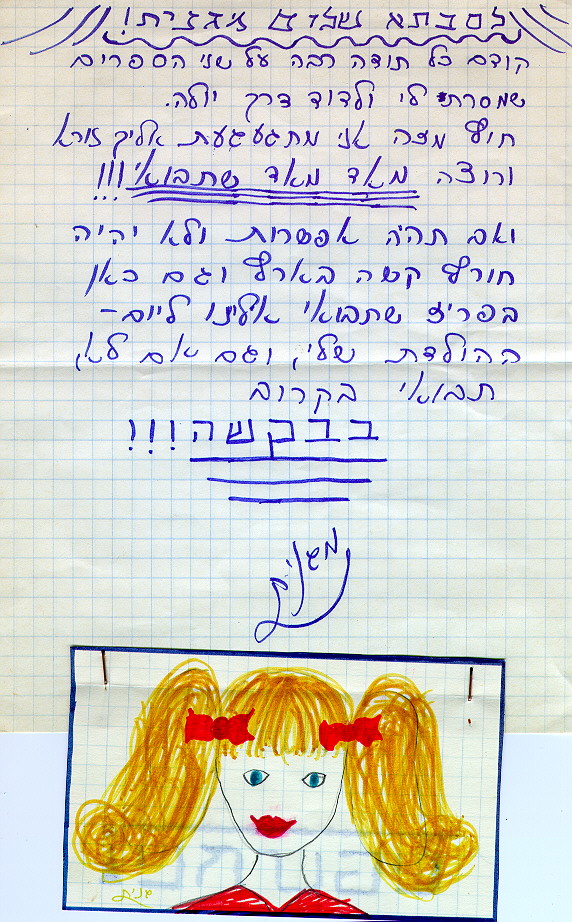 לסבתא שלום וברכה!
קודם כל תודה רבה על שני הספרים
שמסרת לי ולדוד דרך יולה.
חוץ מזה אני מתגעגעת אליך נורא
ורוצה מאד מאד שתבואי!!!
ואם תהיה אפשרות ולא יהיה
חורף קשה בארץ וגם כאן
בפריז שתבואי אלינו ליום-
ההולדת שלי, וגם אם לא,
תבואי בקרוב
בבקשה!!!